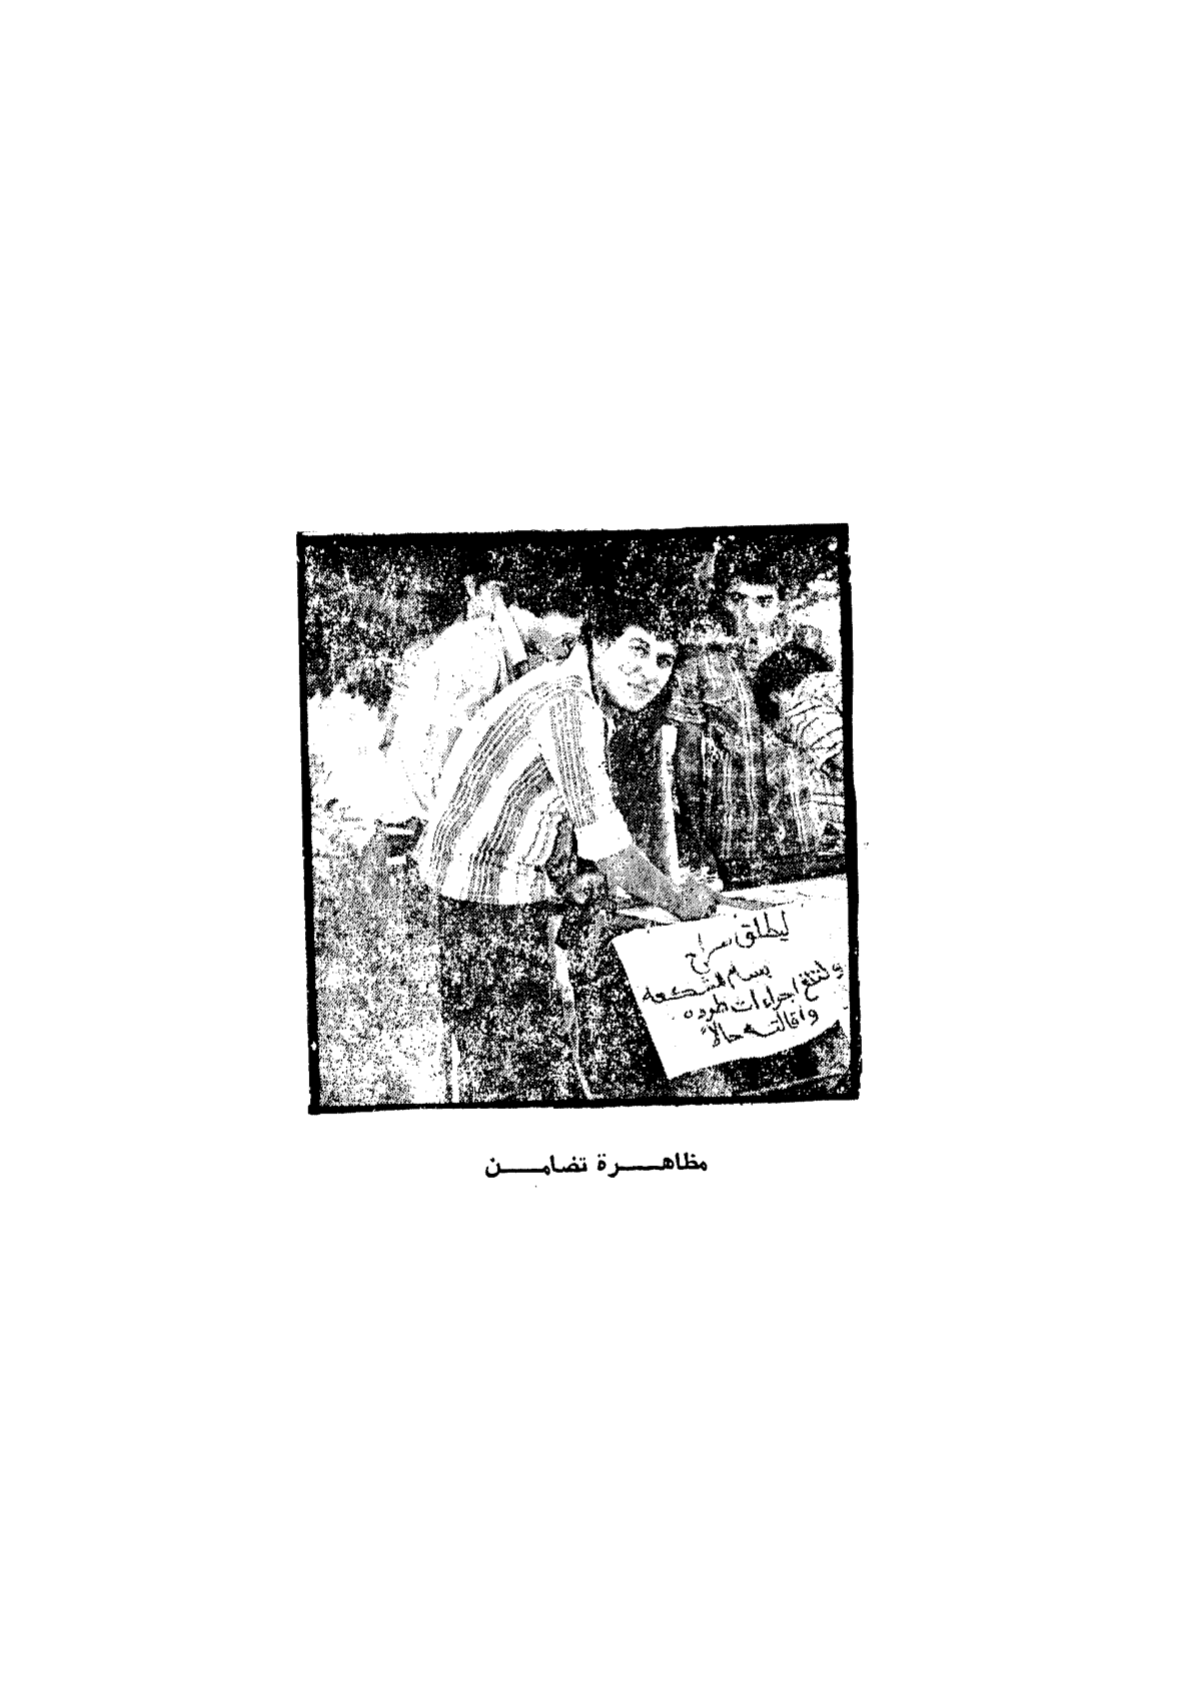 ليطلق سراح
بسام الشكعه
ولتلغ اجراءات طرده
واقالته حالاً
مظاهرة تضامن